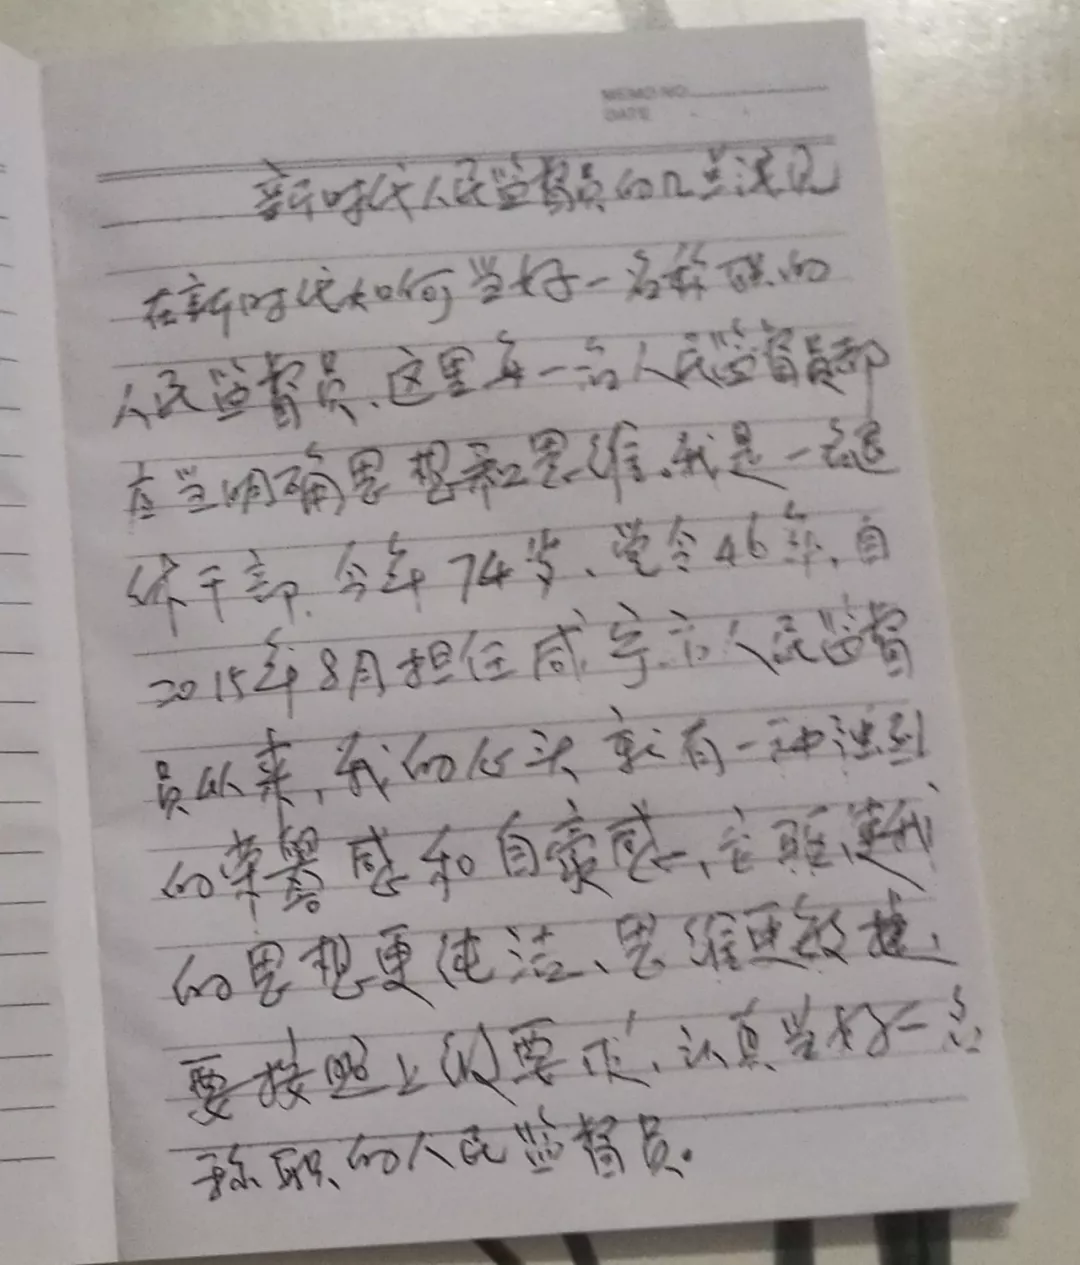 MEMO NO.
DATE
新时代人民监督员的几点浅见
在新时代如何当好一名称职的
人民监督员、这里每一名人民监督员都
应当明确思想和思维、我是一名退
休干部、今年74岁、党令46年、自
2015年8月担任咸宁市人民监督
员从来,我的心头就有一种
的荣誉感和自豪感、使我
的思想更纯洁、思维更敏捷、
要按照上级要求、认真当好一名
称职的人民监督员.